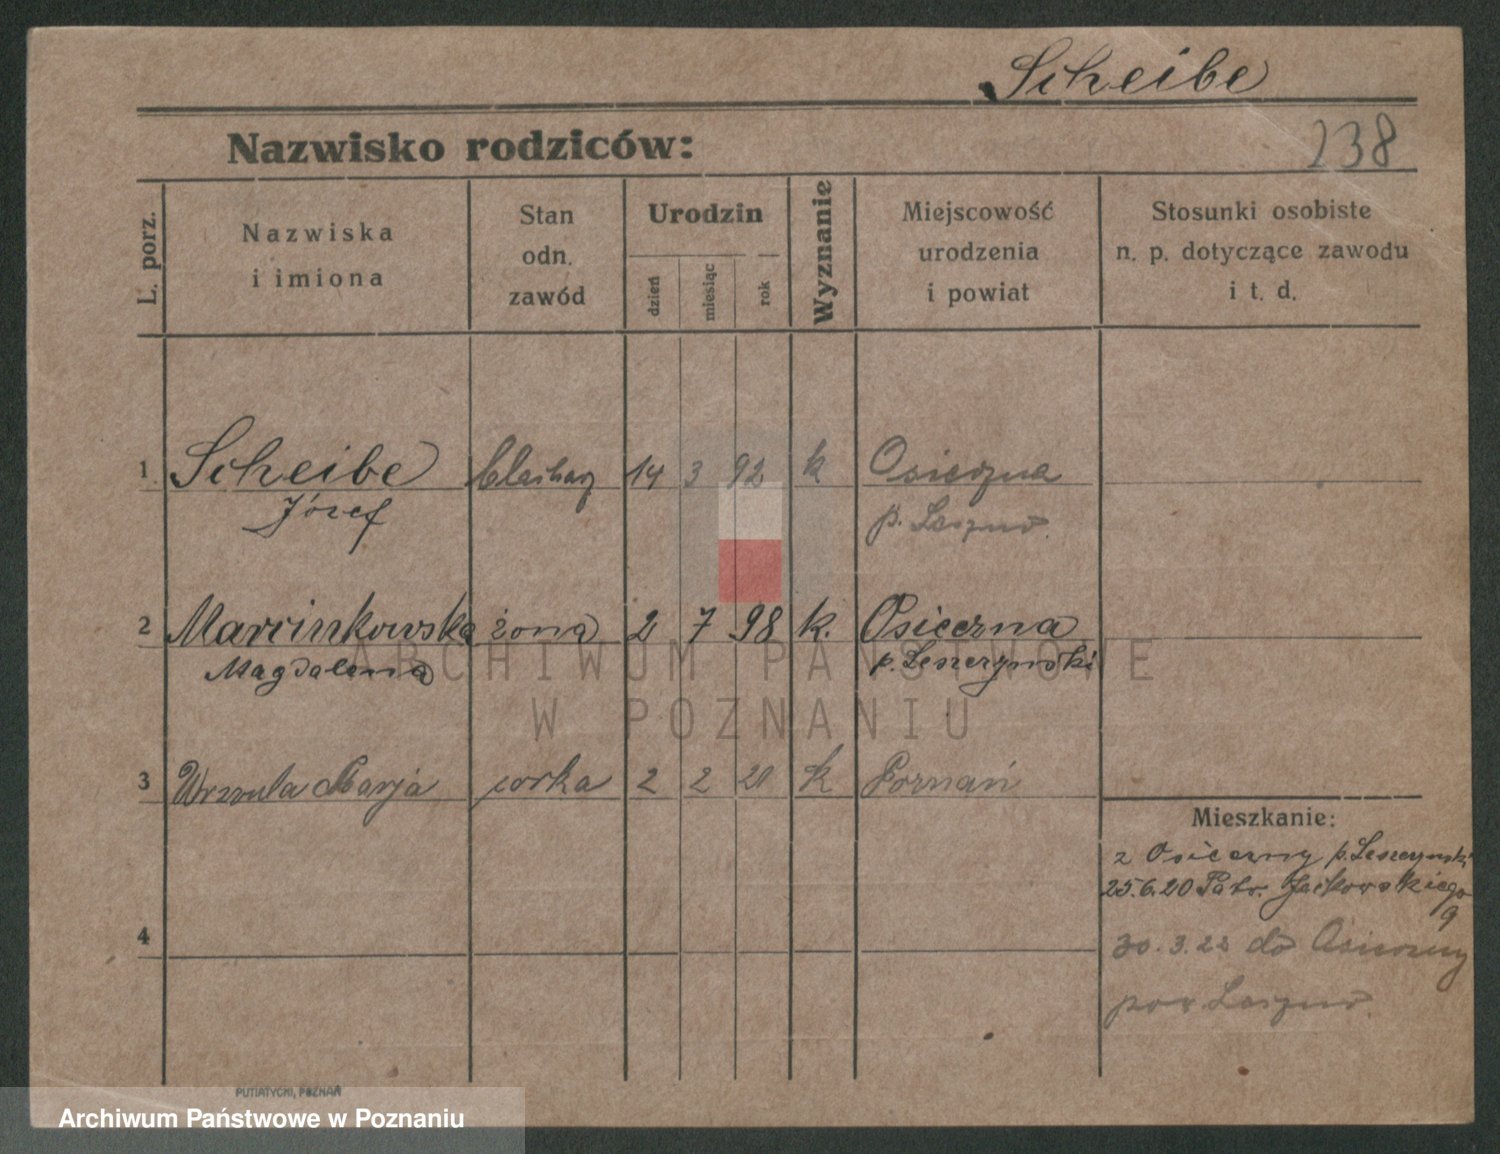 Scheibe
Nazwisko rodziców:
238
L. porz.
Nazwiska
i imiona
Stan
odn.
zawód
Urodzin
dzień
miesiąc
rok
Wyznanie
Miejscowość
urodzenia
i powiat
Stosunki osobiste
n. p. dotyczące zawodu
i t. d.
1 Scheibe blacharz 14 3 92 k Osieczna
Józef p. Leszno.
2 Marcinkowska żona 2 7 98 k. Osieczna
Magdalena p. Leszczyński
3 Urszula Marja córka 2 2 20 k Poznań
Mieszkanie:
z Osieczny p. Leszczyński
25.6.20 Patr. Jackowskiego
9
4
30.3.22 do Osieczny
pow Leszno.
ARCHIWUM PAŃSTWOWE
W POZNANIU
PUTIATYCKI, POZNAŃ
Archiwum Państwowe w Poznaniu